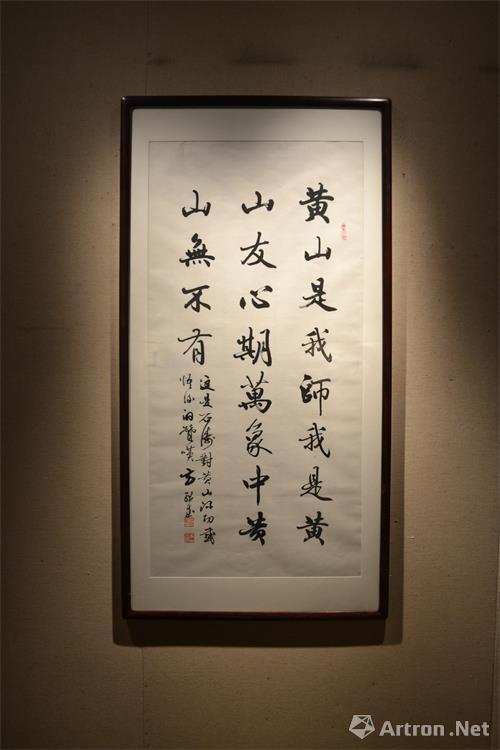 黄山是我師我是黄
山友心期萬象中黄
山無不有
这是石涛對黄山深切感
悟后的赞嘆 方
Artron.Net